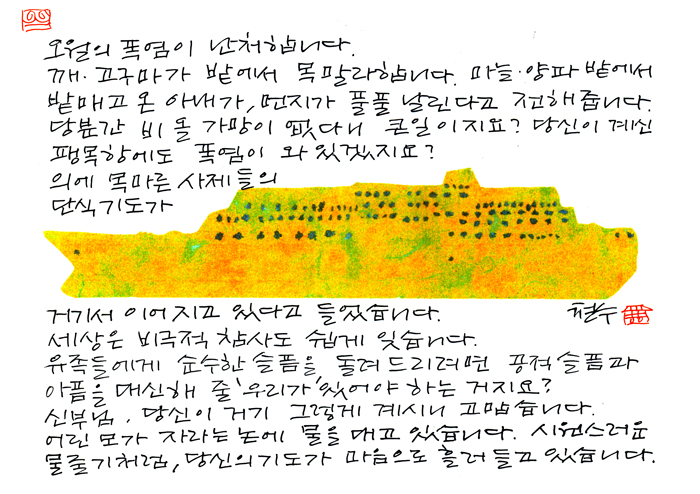 오월의 폭염이 난처합니다.
깨·고구마가 밭에서 목말라합니다. 마늘·양파 밭에서
밭매고 온 아내가, 먼지가 풀풀 날린다고 전해줍니다.
당분간 비 올 가망이 없다니 큰일이지요? 당신이 계신
팽목항에도 폭염이 와 있겠지요?
의에 목마른 사제들의
단식기도가
거기서 이어지고 있다고 들었습니다. 철수
세상은 비극적 참사도 쉽게 잊습니다.
유족들에게 순수한 슬픔을 돌려 드리려면 공적 슬픔과
아픔을 대신해 줄 '우리가' 있어야 하는 거지요?
신부님. 당신이 거기 그렇게 계시니 고맙습니다.
어린 모가 자라는 논에 물을 대고 있습니다. 시원스러운
물줄기처럼, 당신의 기도가 마음으로 흘러 들고 있습니다.